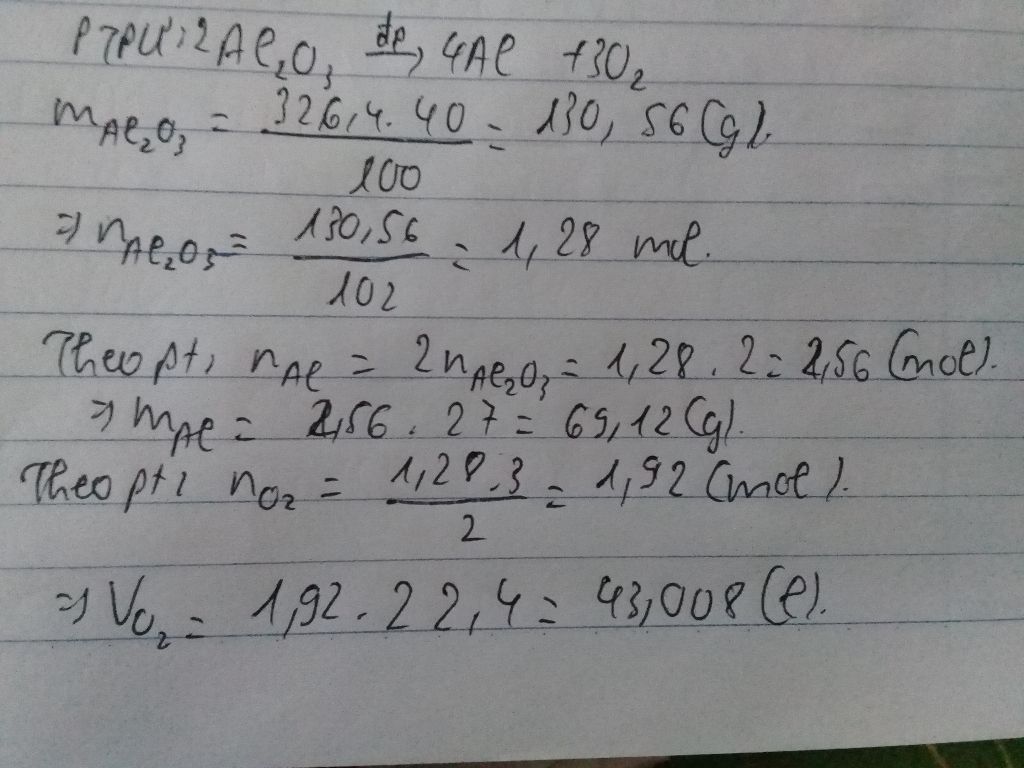 PTPƯ: 2Al₂O₃ đp→ 4Al + 3O₂
mAl₂O₃ = 326,4.40/100 = 130,56 (g).
⇒ nAl₂O₃ = 130,56/102 = 1,28 mol.
Theo pt: nAl = 2nAl₂O₃ = 1,28.2 = 2,56 (mol).
⇒ mAl = 2,56.27 = 69,12 (g).
Theo pt: nO₂ = 1,28.3/2 = 1,92 (mol).
⇒ VO₂ = 1,92.22,4 = 43,008 (l).